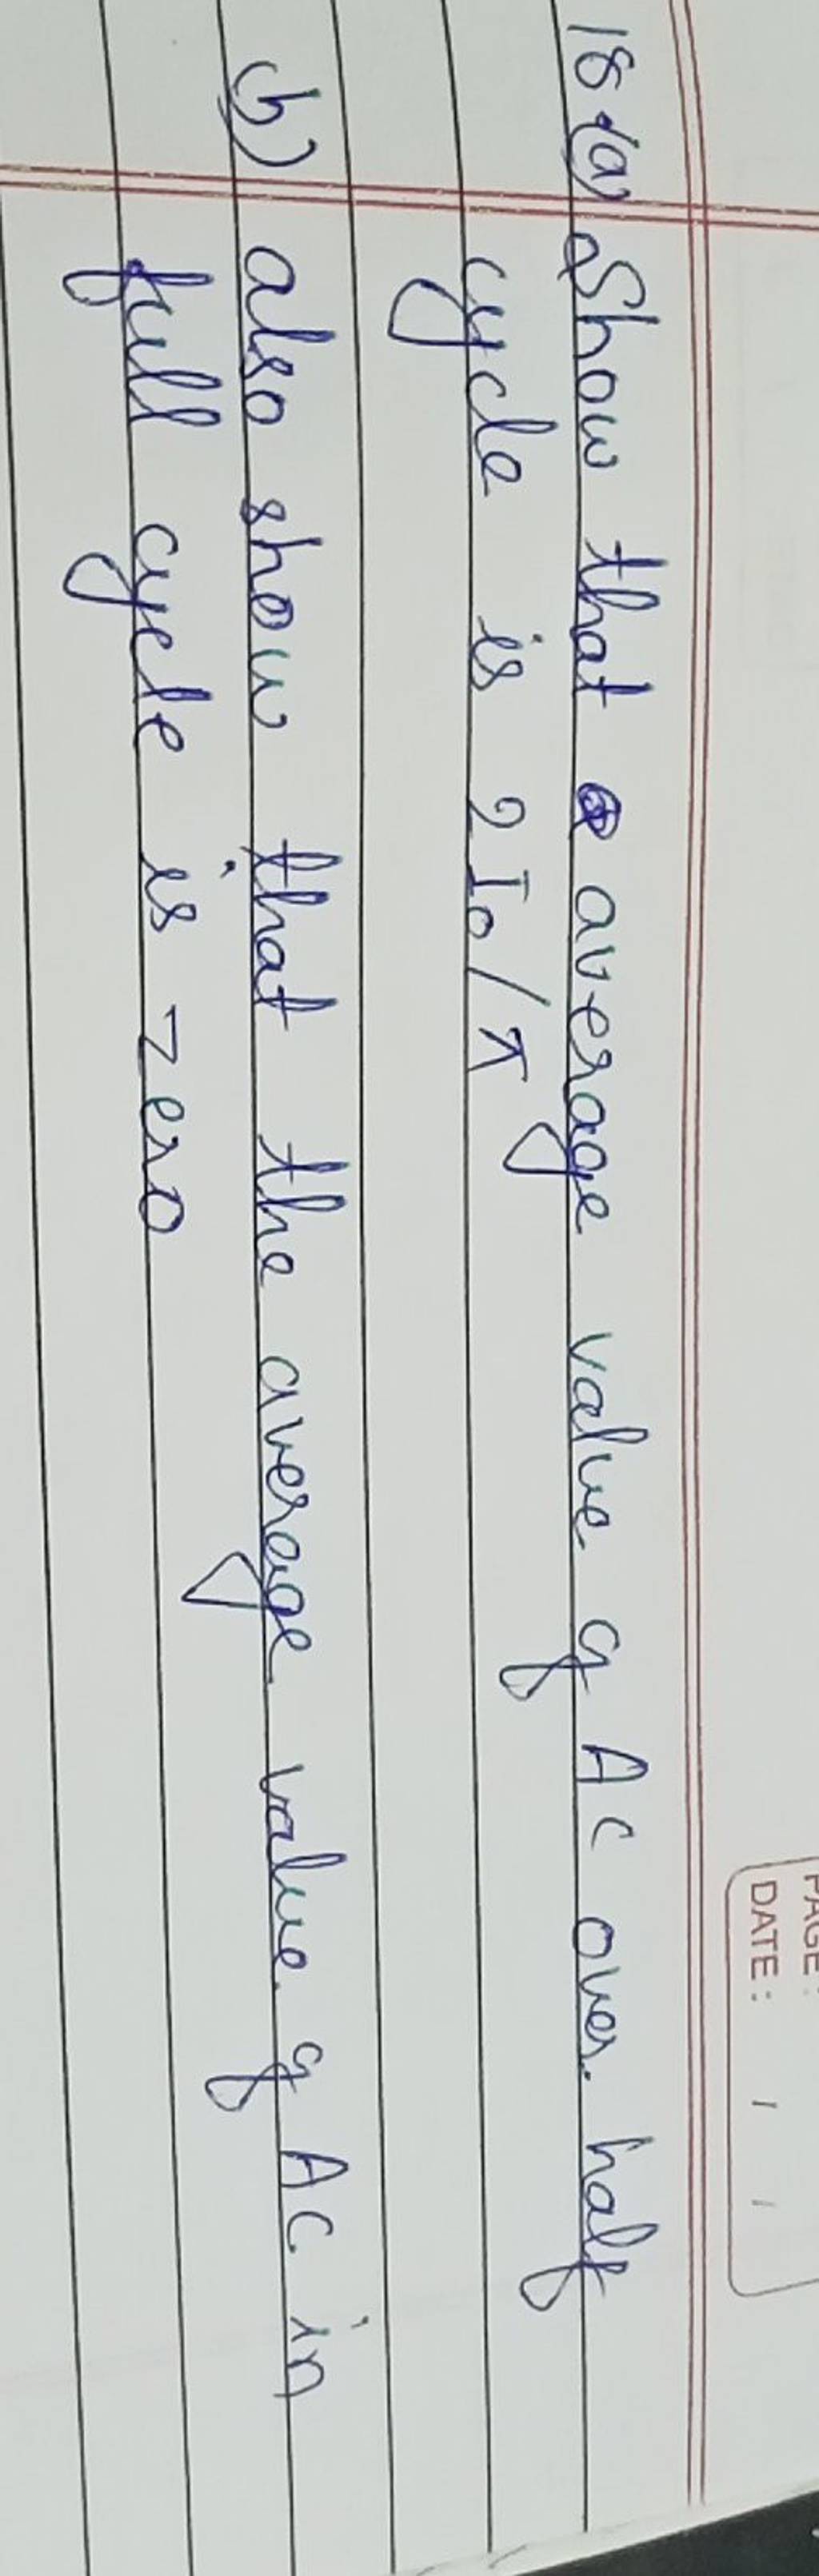 PAGE:
DATE: / /
18.(a) Show that average value of AC over half
cycle is 2I₀/π
(b) also show that the average value of AC in
full cycle is zero